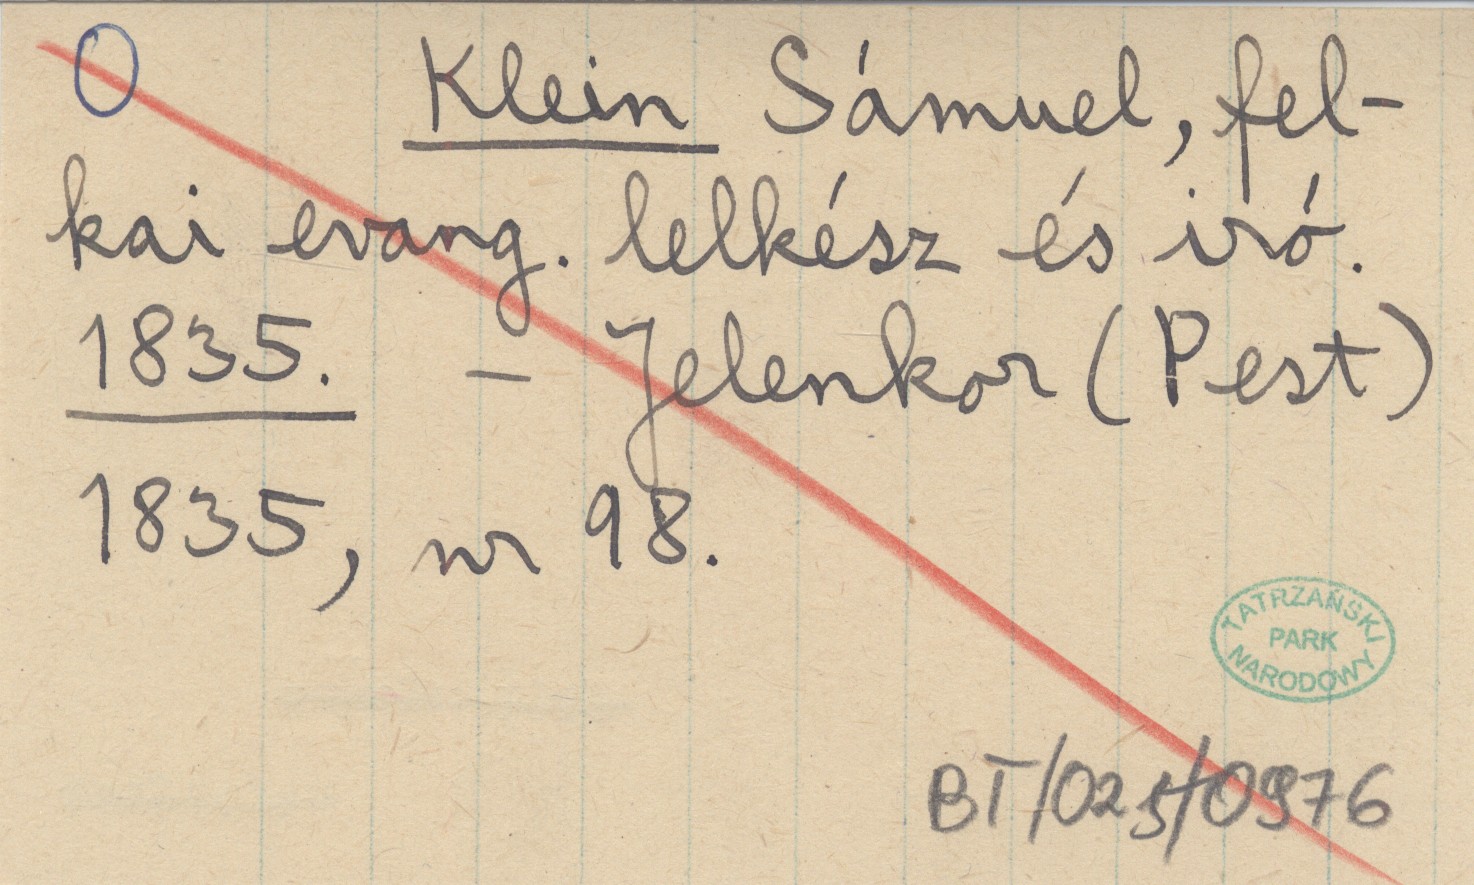 O Klein Sámuel, fel-
kai evang. lelkész és iró.
1835. - Jelenkor (Pest)
1835, nr 98.
TATRZAŃSKI
PARK
NARODOWY
BT/025/0976